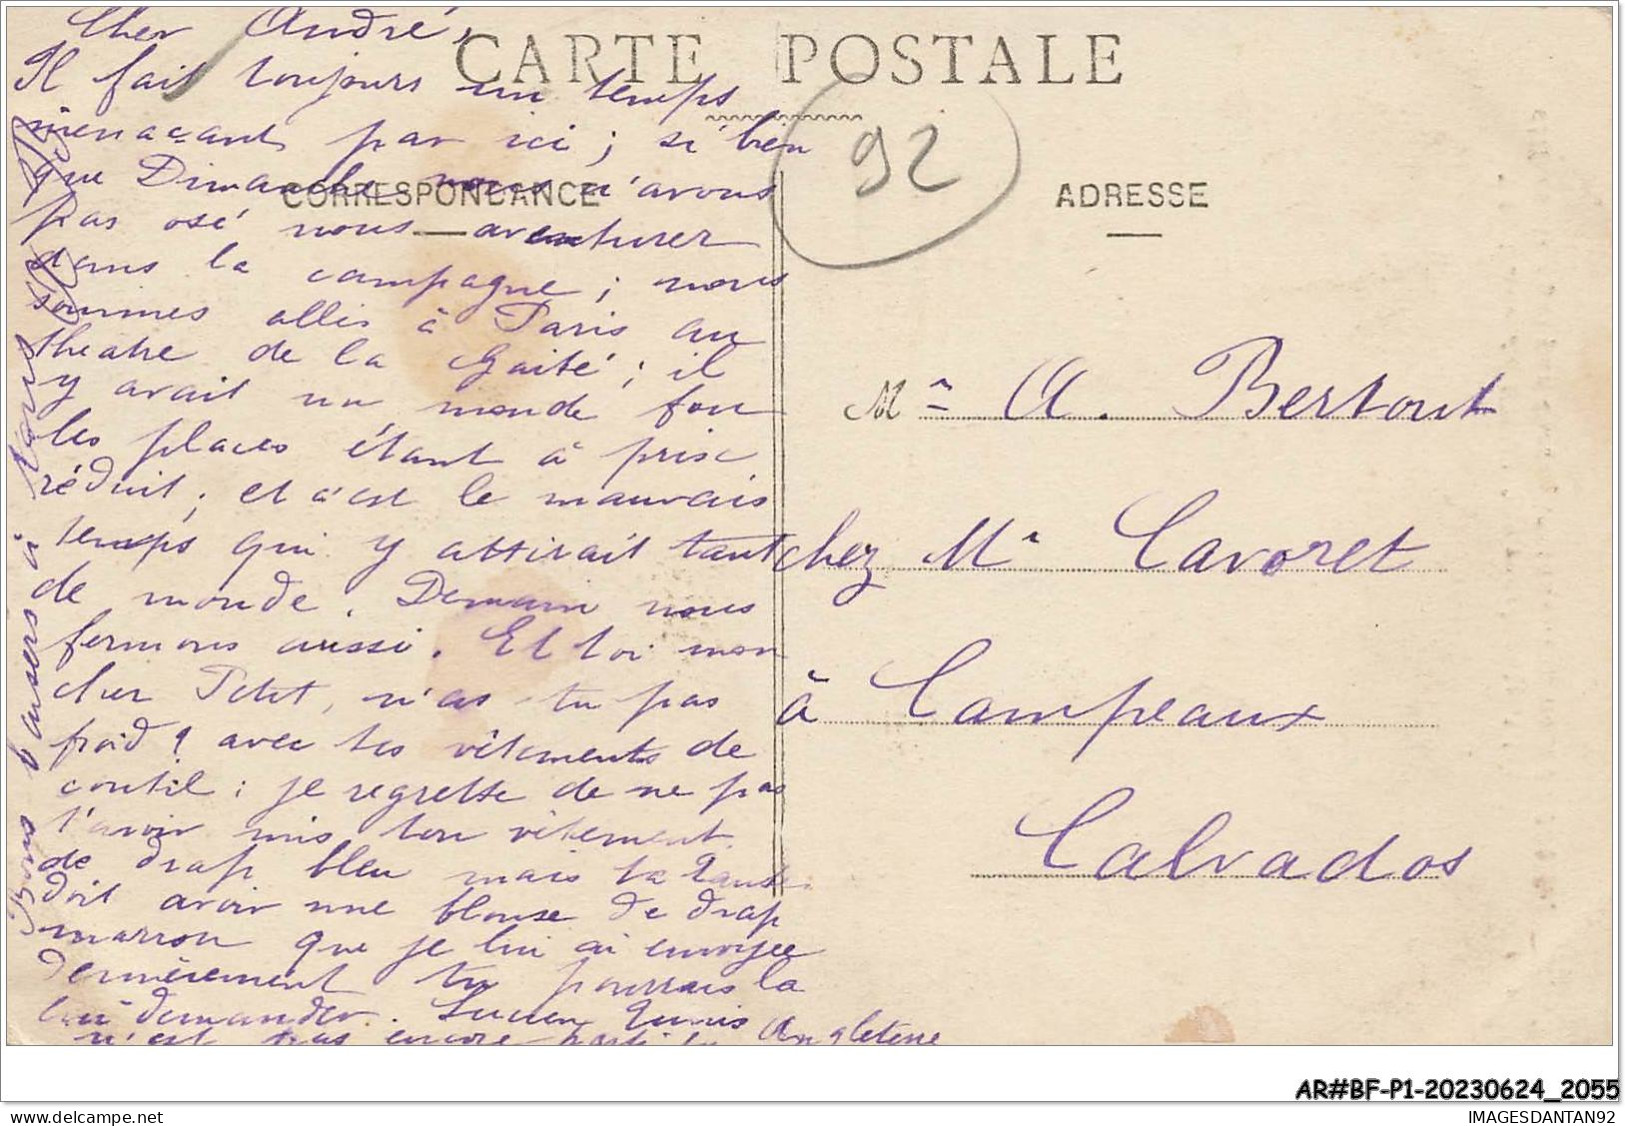 Cher André,
CARTE POSTALE
Il fait toujours un temps
menaçant par ici ; si bien
que Dimanche nous n'avons
pas osé nous aventurer
dans la campagne ; nous
sommes allés à Paris au
théatre de la Gaité ; il
y avait un monde fou
les places étant à prix
réduit, et c'est le mauvais
temps qui y attirait tant
de monde. Demain nous
fermons aussi. Et toi mon
cher Petit, n'as tu pas
froid ? avec tes vêtements de
coutil : je regrette de ne pas
t'avoir mis ton vêtement
de drap bleu mais ta tante
doit avoir une blouse de drap
marron que je lui ai envoyée
dernièrement tu pourrais la
lui demander. Lucien
n'est pas encore parti en Angleterre
Bons baisers à tous
CORRESPONDANCE
92
ADRESSE
Mr A. Bertout
chez Mr Cavoret
à Campeaux
Calvados
AR#BF-P1-20230624_2055
IMAGESDANTAN92